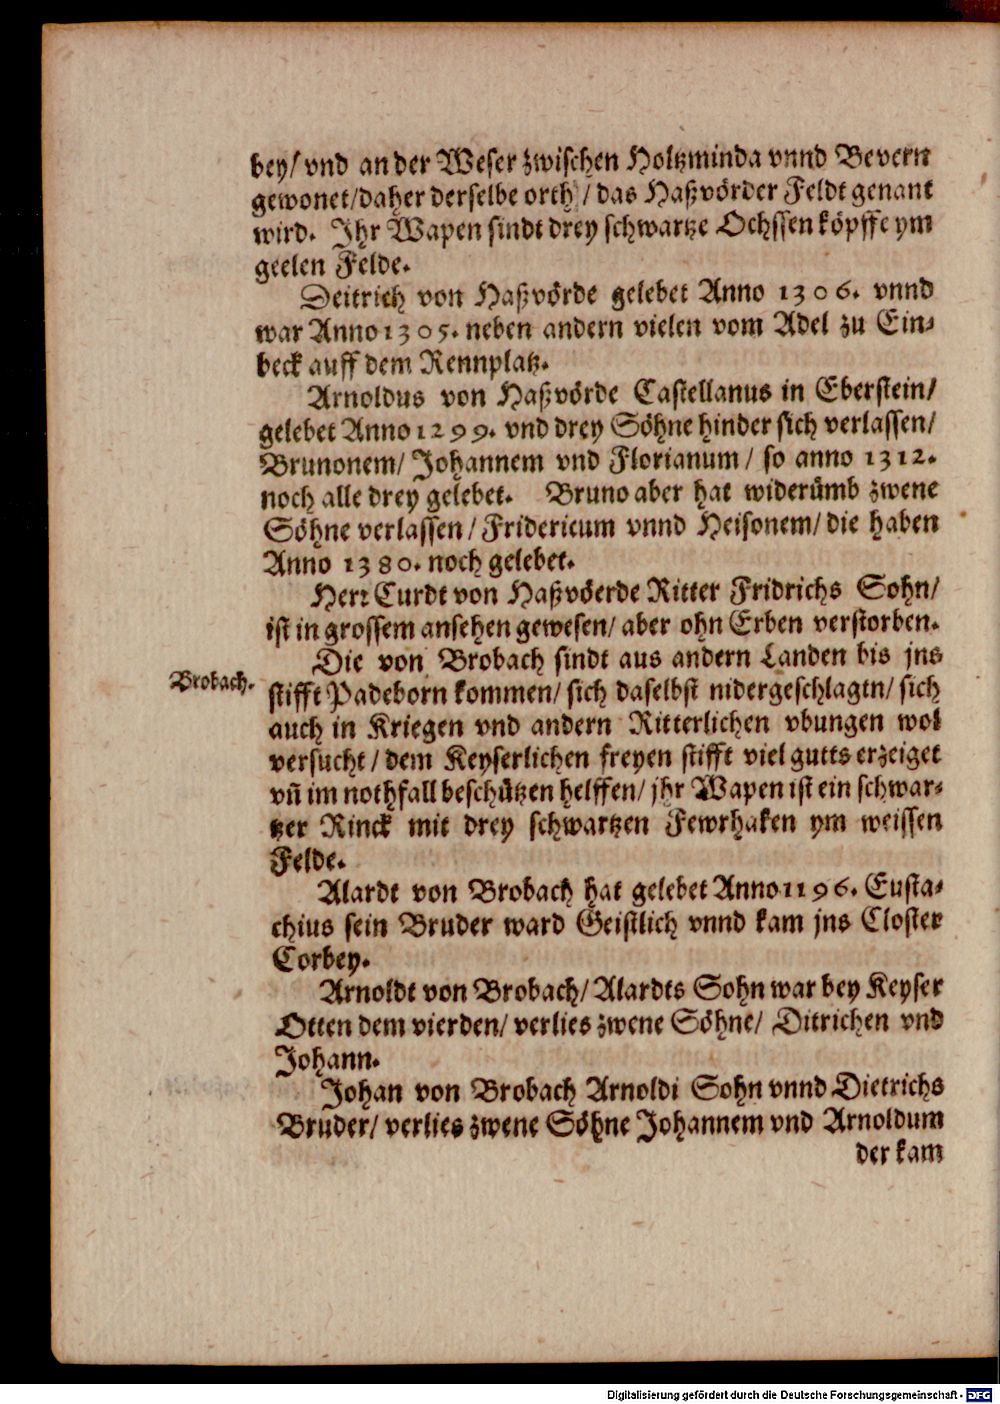 bey/ vnd an der Weser zwischen Holtzminda vnnd Bevern
gewonet/daher derselbe orth / das Haßvörder Feldt genant
wird. Ihr Wapen sindt drey schwartze Ochssen köpffe ym
geelen Felde.
Deitrich von Haßvörde gelebet Anno 1306. vnnd
war Anno 1305. neben andern vielen vom Adel zu Ein-
beck auff dem Rennplatz.
Arnoldus von Haßvörde Castellanus in Eberstein/
gelebet Anno 1299. vnd drey Söhne hinder sich verlassen/
Brunonem/ Johannem vnd Florianum / so anno 1312.
noch alle drey gelebet. Bruno aber hat widerümb zwene
Söhne verlassen / Fridericum vnnd Heisonem/ die haben
Anno 1380. noch gelebet.
Herr Curdt von Haßvöerde Ritter Fridrichs Sohn/
ist in grossem ansehen gewesen/ aber ohn Erben verstorben.
Die von Brobach sindt aus andern Landen bis jns
Brobach.
stifft Padeborn kommen/ sich daselbst nidergeschlagtn/ sich
auch in Kriegen vnd andern Ritterlichen vbungen wol
versucht / dem Keyserlichen freyen stifft viel gutts erzeiget
vñ im nothfall beschützen helffen/ jhr Wapen ist ein schwar-
tzer Rinck mit drey schwartzen Fewrhaken ym weissen
Felde.
Alardt von Brobach hat gelebet Anno 1196. Eusta-
chius sein Bruder ward Geistlich vnnd kam jns Closter
Corbey.
Arnoldt von Brobach/ Alardts Sohn war bey Keyser
Otten dem vierden/ verlies zwene Söhne/ Ditrichen vnd
Johann.
Johan von Brobach Arnoldi Sohn vnnd Dietrichs
Bruder/ verlies zwene Söhne Johannem vnd Arnoldum
der kam
Digitalisierung gefördert durch die Deutsche Forschungsgemeinschaft - DFG